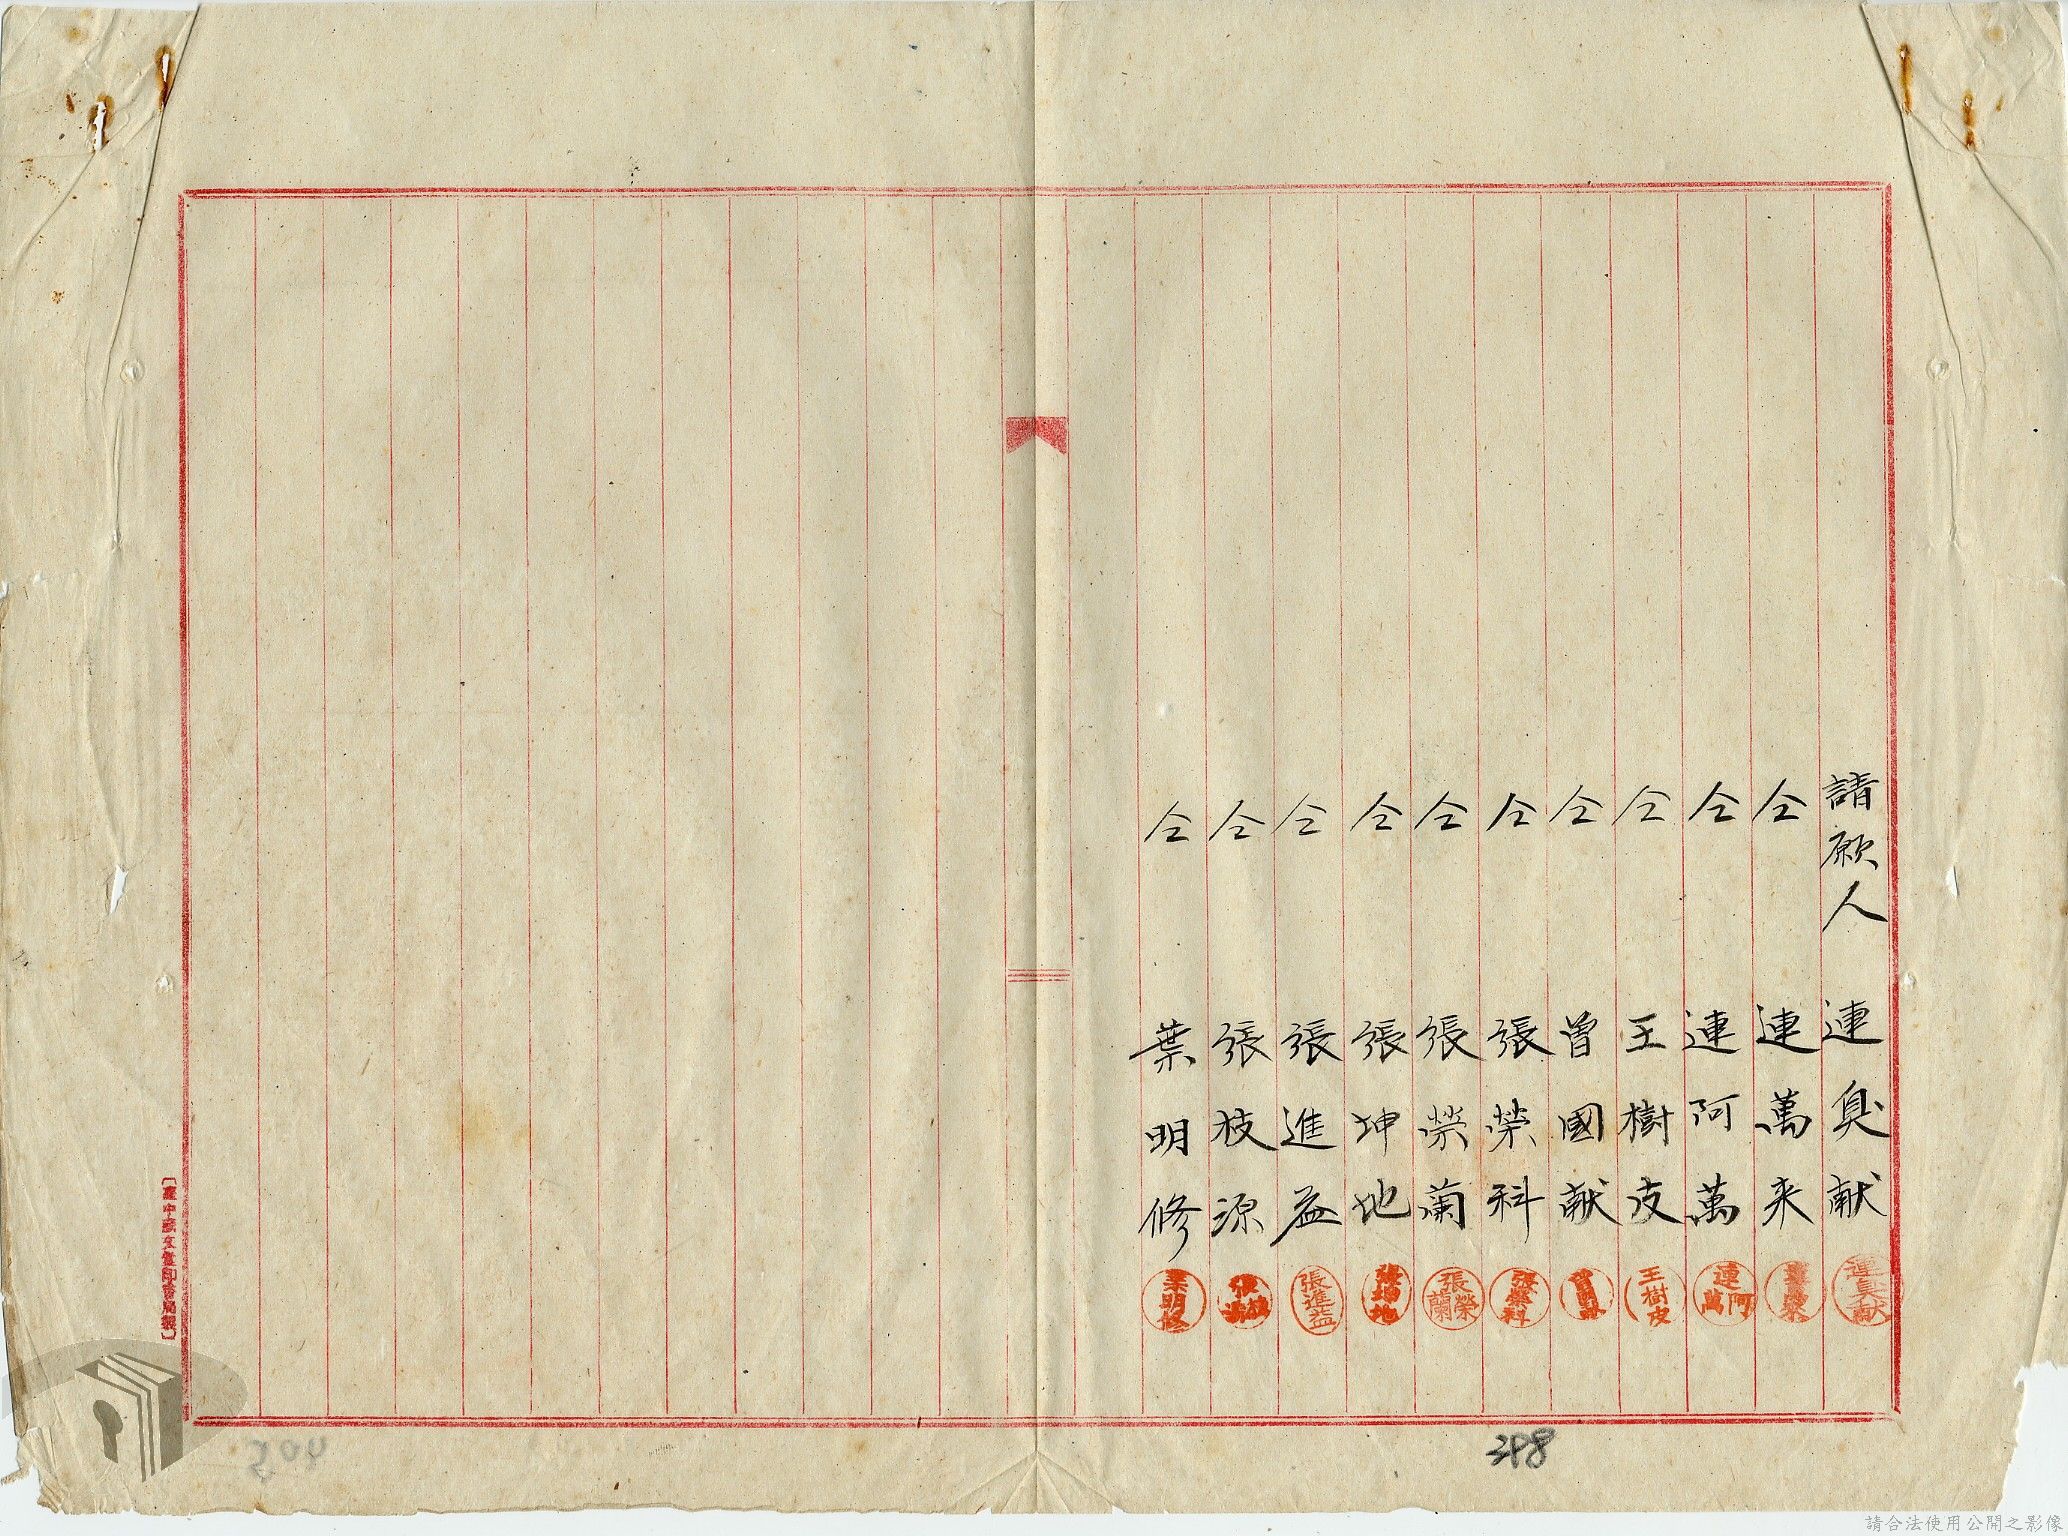 請願人 連臭献
仝 連萬来
仝 連阿萬
仝 王樹皮
仝 曾國献
仝 張榮科
仝 張榮蘭
仝 張坤地
仝 張進益
仝 張枝源
仝 葉明修
連臭献
連阿萬
王樹皮
張榮科
張榮蘭
張進益
張枝源
葉明修
398
請合法使用公開之影像